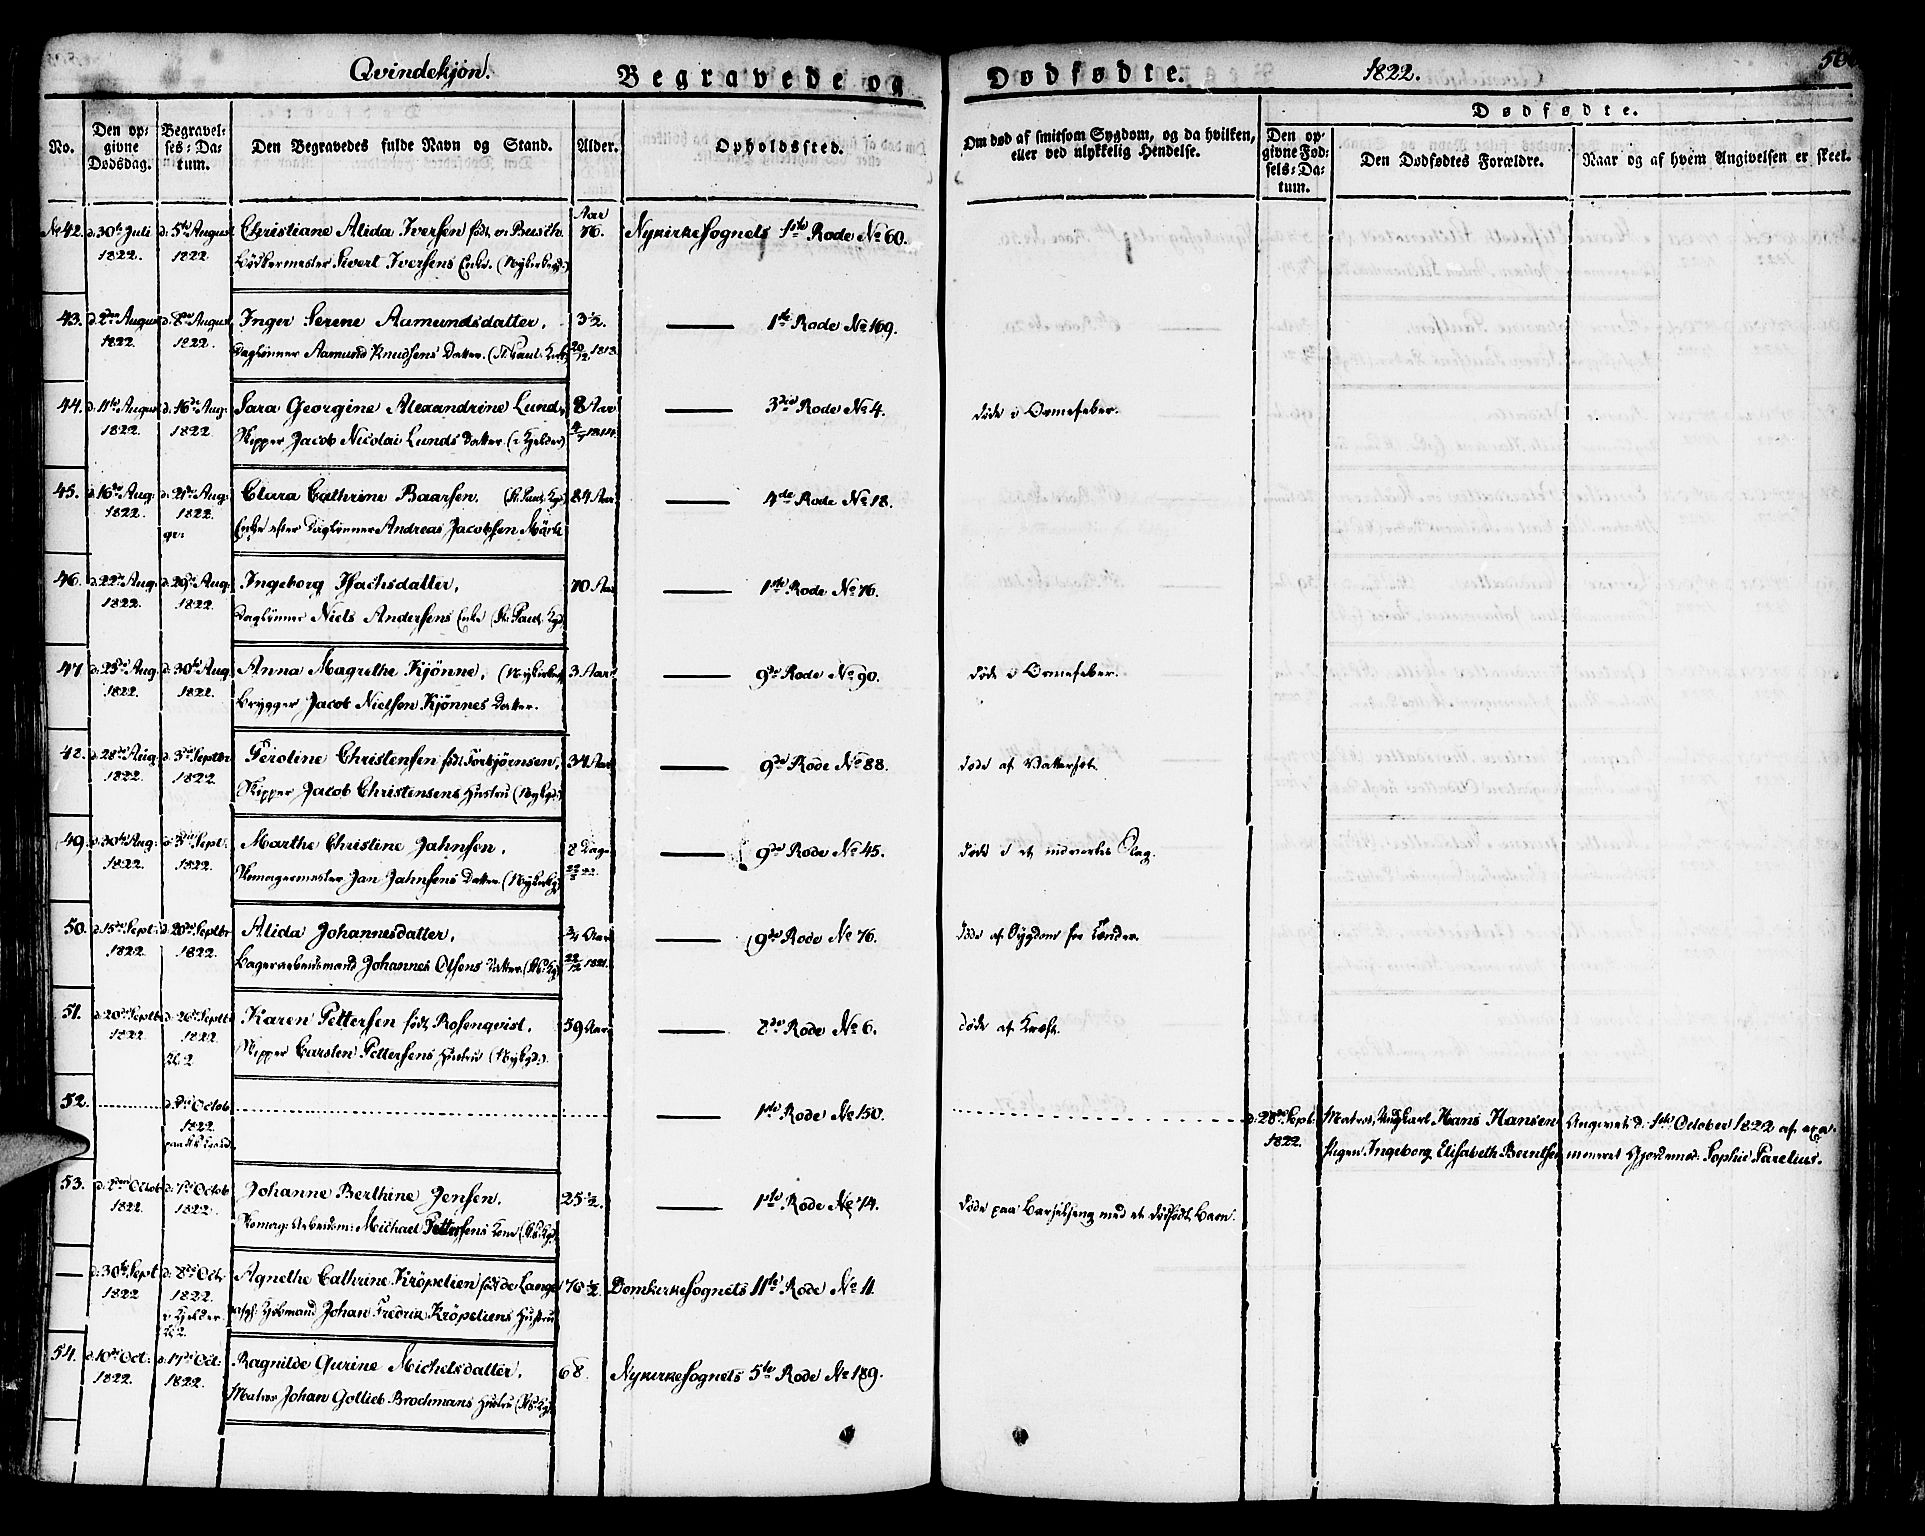 Qvindekjøn. Begravede og Dødfødte. 1822.
No. Den opgivne Dødsdag. Begravelses-Datum. Den Begravedes fulde Navn og Stand. Alder. Opholdssted. Om død af smitsom Sygdom, og da hvilken, eller ved ulykkelig Hendelse. Dødfødte. Den opgivne Fødsels-Datum. Den Dødfødtes Forældre. Naar og af hvem Angivelsen er skeet.
No 42. d. 30te Juli d. 5te August Christiane Alida Iversen født v. Busch. Aar 76. Nykirkesognets 1ste Rode No 60.
1822. 1822. Bödkermester Sivert Iversens Enke. (Nykirkegd.)
43. d. 2den August d. 8de August Inger Serene Aamundsdatter. 3½. 1ste Rode No 169.
1822. 1822. Daglönner Aamund Knudsens Datter. (St. Pauls Kirkg)
44. d. 11te August d. 16de Aug: Sara Georgine Alexandrine Lund, 8 Aar 3die Rode No 4. døde i Ormefeber.
1822. 1822. Skipper Jacob Nicolai Lunds Datter. (i Kjelder)
45. d. 16de Aug: d. 21de Aug: Clara Cathrine Baarsen. (St. Pauls Kgd) 84 Aar 4de Rode No 18.
1822. 1822. Enke efter Daglönner Andreas Jacobsen Mörk
gr:
46. d. 22de Aug: d. 29de Aug: Ingeborg Isachsdatter, 70 Aar 1ste Rode No 76.
1822. 1822. Daglönner Niels Andersens Enke (St: Pauls Kgd)
47 d. 25de Aug. d. 30te Aug. Anna Magrethe Kjönne, (Nykirkegd) 3 Aar 9de Rode No 90. døde i Ormefeber.
1822. 1822. Brygger Jacob Nielsen Kjönnes Datter.
48. d. 28de Aug. d. 3die Septbr Feroline Christensen född Torbjörnsen, 34 Aar 9de Rode No 88. døde af Vattersot.
1822. 1822. Skipper Jacob Christensens Hustru (Nykgd)
49. d. 30te Aug: d. 3die Sept: Marthe Christine Jahnsen, 8 Dage 9de Rode No 45. døde i et indvortes Slag.
1822. 1822. Skomagermester Jan Jahnsens Datter (Nykirkgd)
50. d. 15de Sept: d. 20de Septbr Alida Johannesdatter, ¾ Aar 9de Rode No 76. døde af Sygdom for Tænder.
1822. 1822. Bagerarbeidsmand Johannes Olsens Datter. (St: Kg) 22/12 1821.
51. d. 20de Septbr d. 26de Septbr Karen Pettersen född Rosenqvist, 59 Aar 8de Rode No 6. døde af Kræft.
1822. 1822. Skipper Carsten Pettersens Hustru (Nykgd.)
Kl. 2
52. d. 2de Octob 1ste Rode No 150. d. 28de Sept. Matros, Ungkarl Hans Hansen Angivet d. 1ste October 1822 af exa-
1822. 1822. Pigen Ingeborg Elisabeth Berntsen mineret Gjordemor Sophie Parelius.
53. d. 2den Octob d. 7de Octob Johanne Berthine Jensen, 25½. 1ste Rode No 14. døde paa Barselseng med et dødfødt Barn.
1822. 1822. Skomag: Arbeidsm: Michael Pettersens Kone
d. 30te Sept d. 8de Oct: Agnethe Cathrine Kröpelien född de Lange 76½. Domkirkesognets 11te Rode No 11.
1822 1822. Kjøbmand Johan Fredrik Kröpeliens Hustru
i Kjelder.
Kl 2.
54. d. 10de Oct: d. 17de Oct: Ragnilde Gurine Michelsdatter, 68. Nykirkesognets 5te Rode No 189.
1822. 1822. Matros Johan Gottlieb Brochmans Hustru